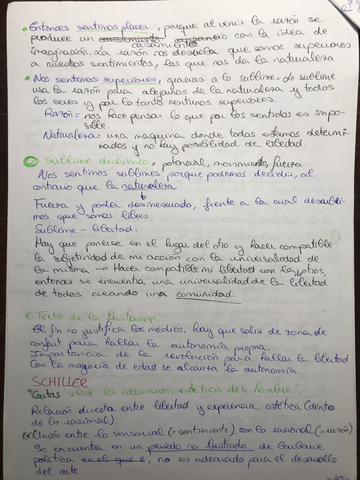 • Entonces sentimos placer, porque al venir la razón se
produce un casamiento con la idea de
imaginación. La razón nos desvela que somos superiores
a nuestros sentimientos, los que nos da la naturaleza.
• Nos sentimos superiores, gracias a lo sublime. Lo sublime
usa la razón para alejarnos de la naturaleza y todos
los seres y por lo tanto sentirnos superiores.
Razón = nos hace pensar lo que por los sentidos es impo-
sible.
Naturaleza = una máquina donde todos estamos determi-
nados y no hay posibilidad de libertad.
Sublime dinámico: potencial, movimiento, fuerza
Nos sentimos sublimes porque podemos decidir, al
contrario que la naturaleza
Fuerza y poder desmesurado, frente a la cual descubri-
mos que somos libres.
Sublime - libertad.
Hay que ponerse en el lugar del otro y hacer compatible
la subjetividad de mi acción con la universalidad de
la misma → Hacer compatible mi libertad con
entonces se encuentra una universalidad de la libertad
de todos creando una comunidad.
Texto de la Ilustración
El fin no justifica los medios, hay que salir de zona de
confort para hallar la autonomía propia.
Importancia de la revolución para hallar la libertad
Con la mayoría de edad se alcanza la autonomía.
SCHILLER
"Cartas sobre la educación estética del hombre"
Relación directa entre libertad y experiencia estética (dentro
de lo racional).
Unión entre lo sensorial (= sentimiento) con lo racional (= razón)
Se encuentra en un periodo no ilustrado de barbarie
política en el que no es adecuado para el desarrollo
del arte